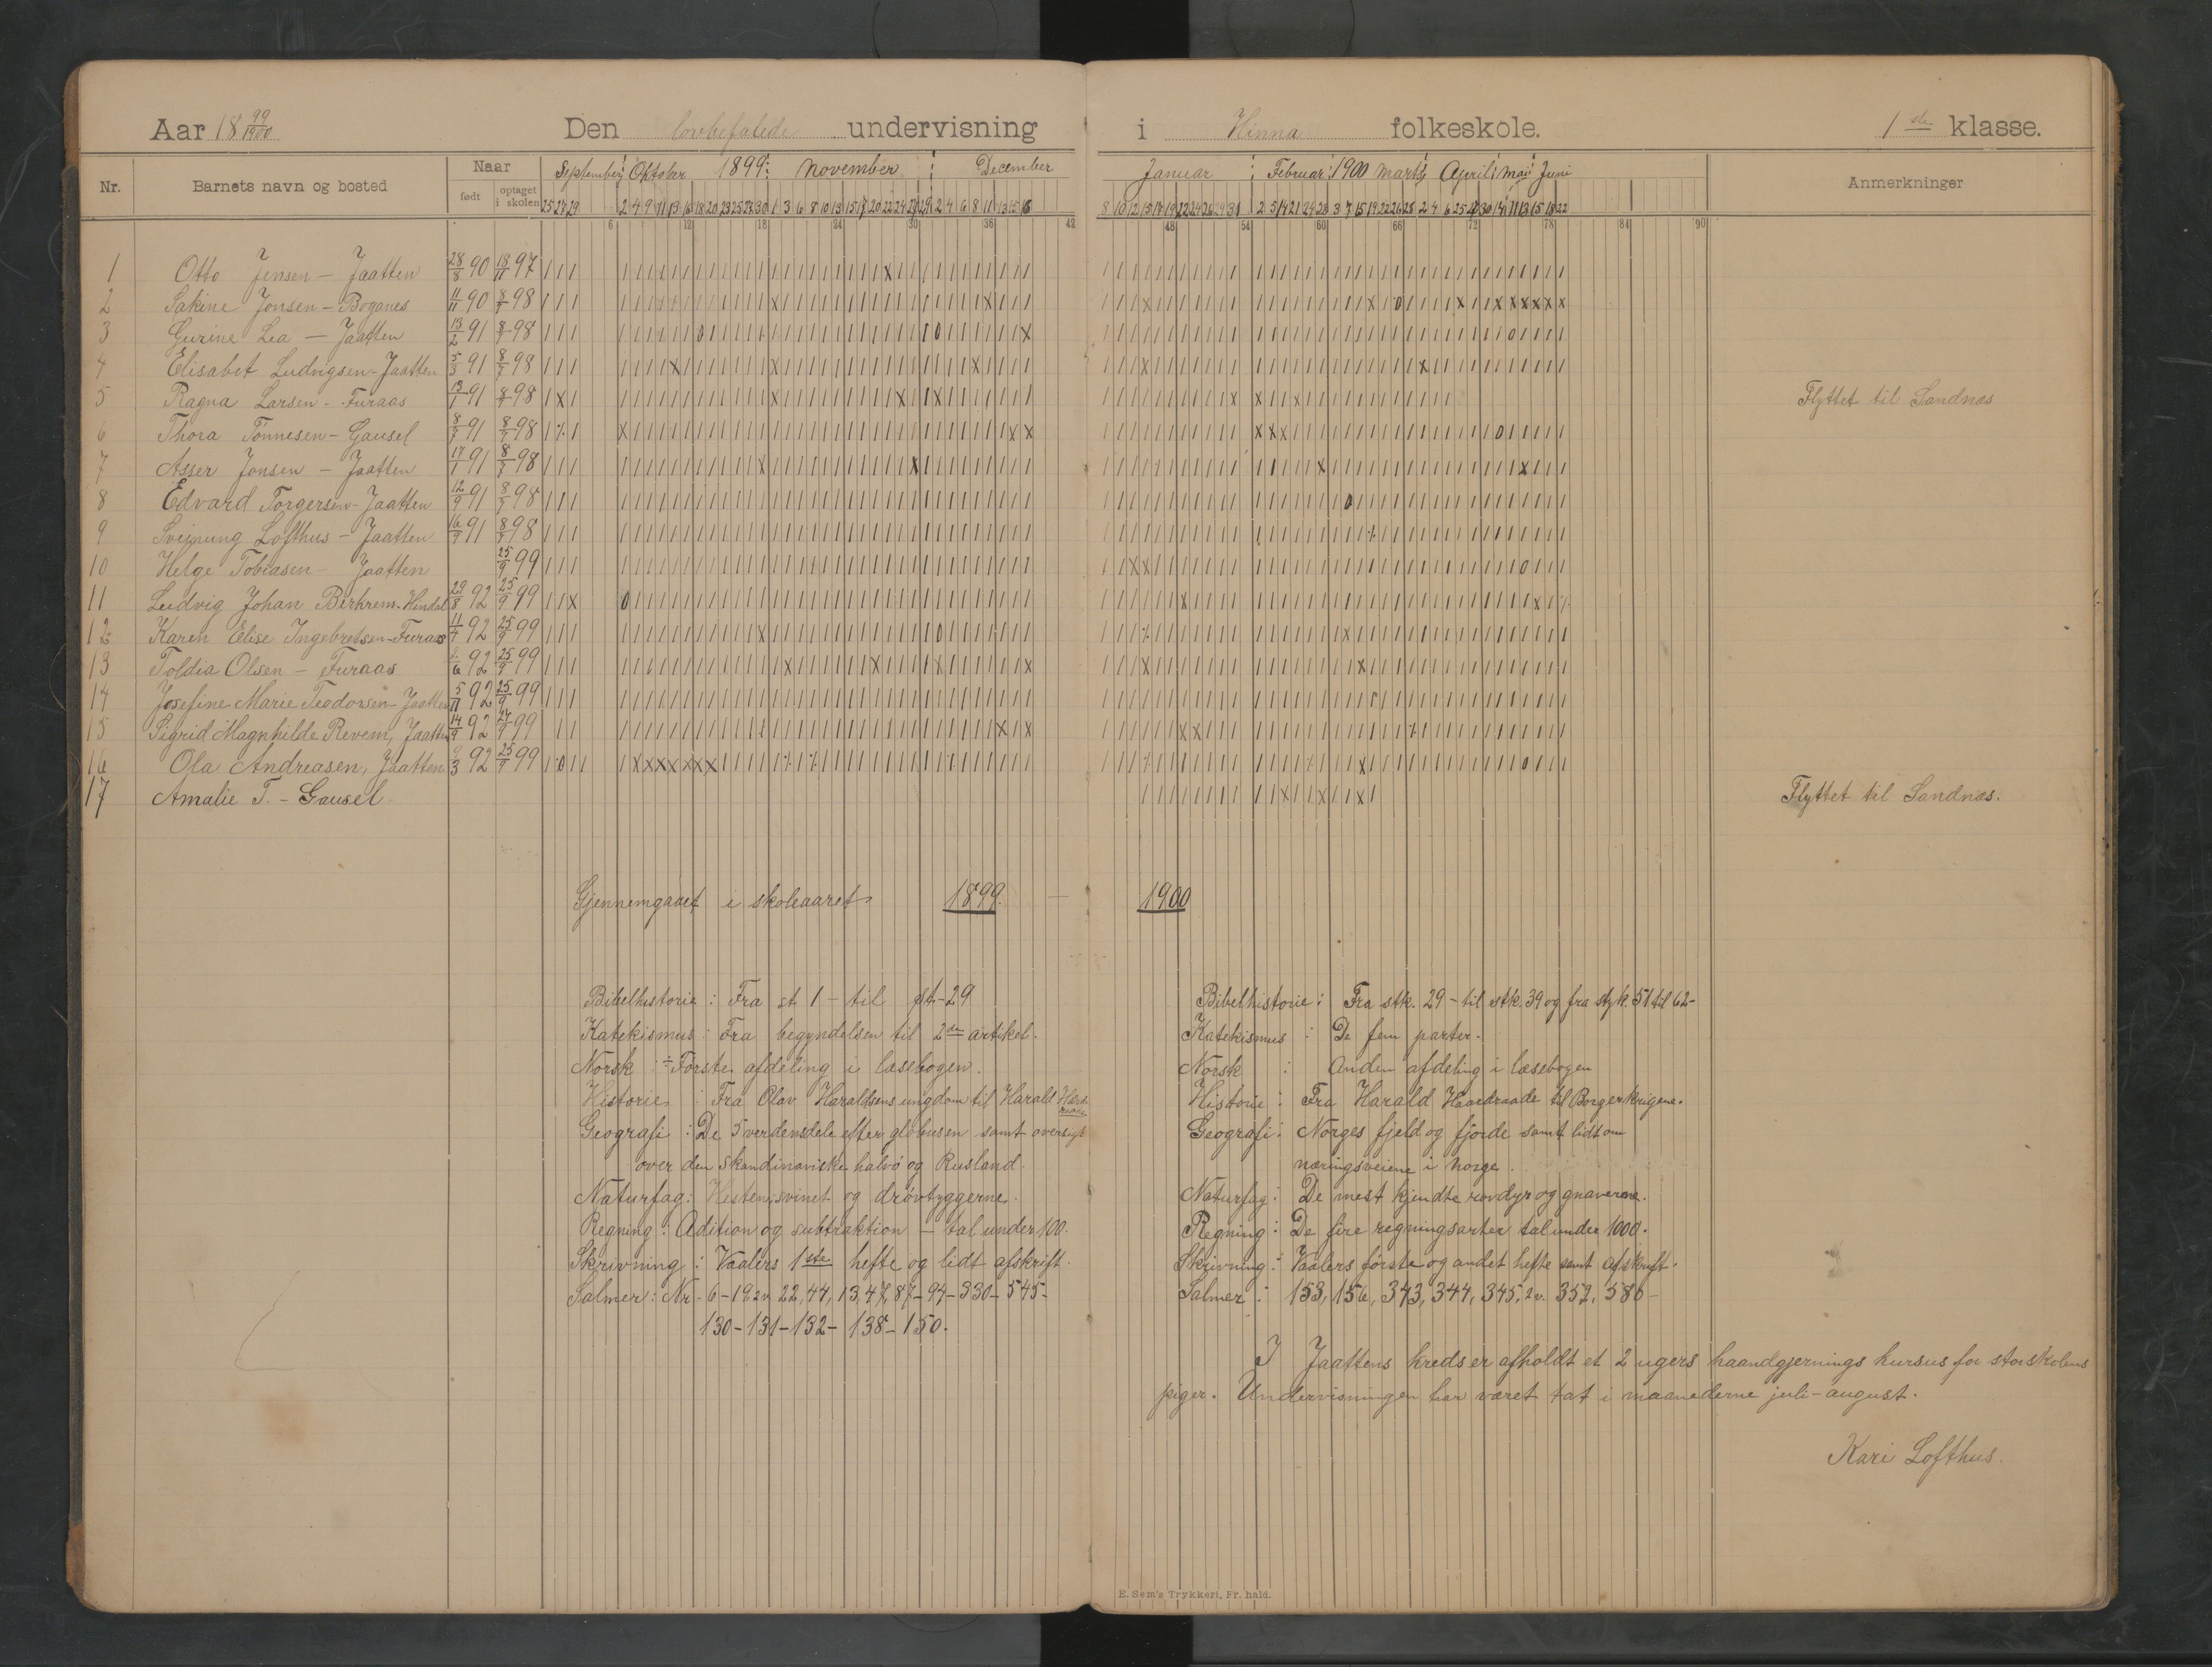 Aar 18 99/1900 Den lovbefalede undervisning i Hinna folkeskole. 1ste klasse.
Nr. Barnets navn og bosted Naar født optaget i skolen September Oktober 1899 November December Januar Februar 1900 Marts April Mai Juni Anmerkninger
6 12 18 24 30 36 42 48 54 60 66 72 78 84 90
1 Otto Jensen – Jaatten 28/8 90 18/11 97
2 Sakine Jonsen – Boganes 11/11 90 8/7 98
3 Gurine Lea – Jaatten 13/2 91 8/7 98
4 Elisabet Ludvigsen – Jaatten 5/3 91 8/7 98
5 Ragna Larsen – Furaas 13/1 91 8/7 98 Flyttet til Sandnæs
6 Thora Tönnesen – Gausel 8/7 91 8/7 98
7 Asser Jonsen – Jaatten 17/1 91 8/7 98
8 Edvard Torgersen – Jaatten 12/9 91 8/7 98
9 Sveinung Lofthus – Jaatten 16/9 91 8/7 98
10 Helge Tobiasen – Jaatten 25/9 99
11 Ludvig Johan Birkrem – Hindal 29/8 92 25/9 99
12 Karen Elise Ingebretsen – Furaas 11/7 92 25/9 99
13 Toldia Olsen – Furaas 92 25/9 99
14 Josefine Marie Teodorsen – Jaatten 5/11 92 25/9 99
15 Sigrid Magnhilde Revem, Jaatten 14/9 92 27/9 99
16 Ola Andreasen, Jaatten 9/3 92 25/9 99
17 Amalie T. – Gausel Flyttet til Sandnæs.
Gjennemgaaet i skoleaaret 1899 – 1900
Bibelhistorie : Fra st 1 – til st – 29
Katekismus : Fra begyndelsen til 2den artikel.
Norsk : Förste afdeling i læsebogen.
Historie : Fra Olav Haraldsens ungdom til Harald Haardraade
Geografi : De 5 verdensdele efter globusen samt oversigt
over den skandinaviske halvö og Rusland.
Naturfag : Hesten, svinet og drövtyggerne.
Regning : Adition og subtraktion – tal under 100.
Skrivning : Vaalers 1ste hefte og lidt afskrift.
Salmer : Nr – 6 – 19, 2v, 22, 44, 13, 47, 87 – 94 – 330 – 545 –
130 – 131 – 132 – 138 – 150.
Bibelhistorie : Fra stk. 29 – til stk. 39 og fra styk. 51 til 62 –
Katekismus : De fem parter.
Norsk : Anden afdeling i læsebogen
Historie : Fra Harald Haardraade til Borgerkrigene.
Geografi : Norges fjeld og fjorde samt lidt om
næringsveiene i Norge.
Naturfag : De mest kjendte rovdyr og gnaverne.
Regning : De fire regningsarter tal under 1000.
Skrivning : Vaalers förste og andet hefte samt afskrift.
Salmer : 153, 156, 343, 344, 345, 2v. 352, 586 –
I Jaattens kreds er afholdt et 2 ugers haandgjernings kursus for storskolens
piger. Undervisningen har været tat i maanederne juli – august.
Kari Lofthus.
E. Sem's Trykkeri, Fr. hald.